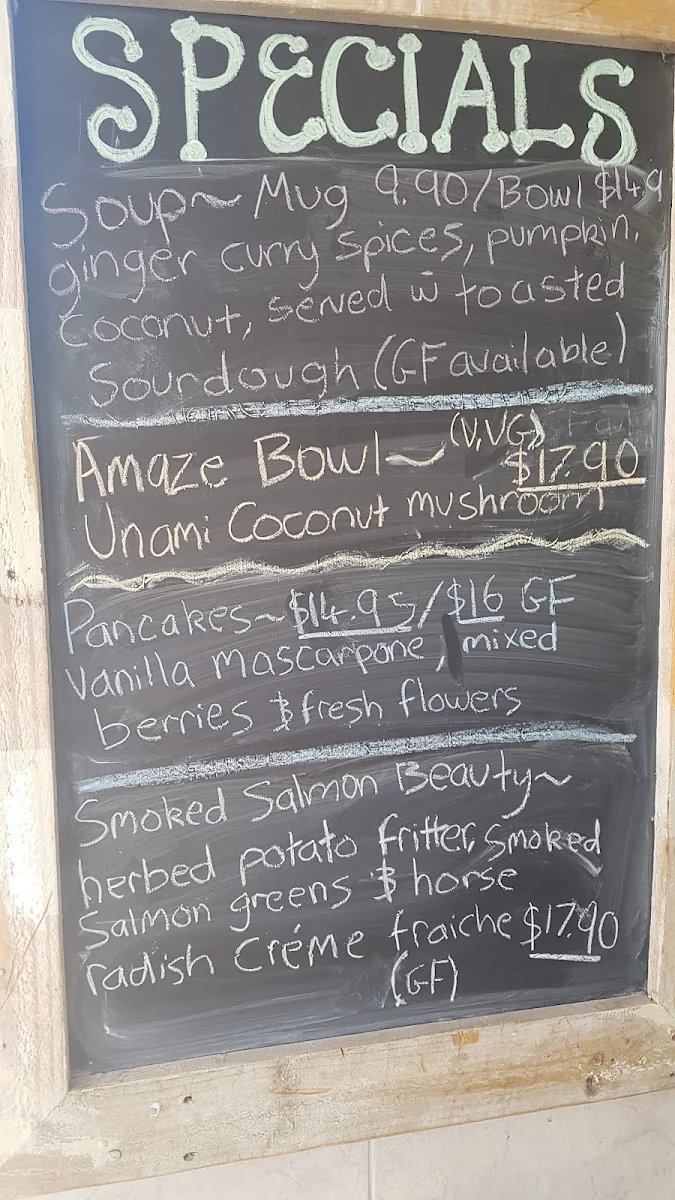 SPECIALS
Soup~ Mug 9.90/Bowl $14.9
ginger curry spices, pumpkin,
coconut, served w toasted
Sourdough (GF available)
Amaze Bowl~ (V,VG) $17.90
Unami Coconut mushroom
Pancakes~ $14.95/$16 GF
Vanilla mascarpone, mixed
berries & fresh flowers
Smoked Salmon Beauty~
herbed potato fritter, smoked
Salmon greens & horse
radish Créme fraiche $17.90
(GF)